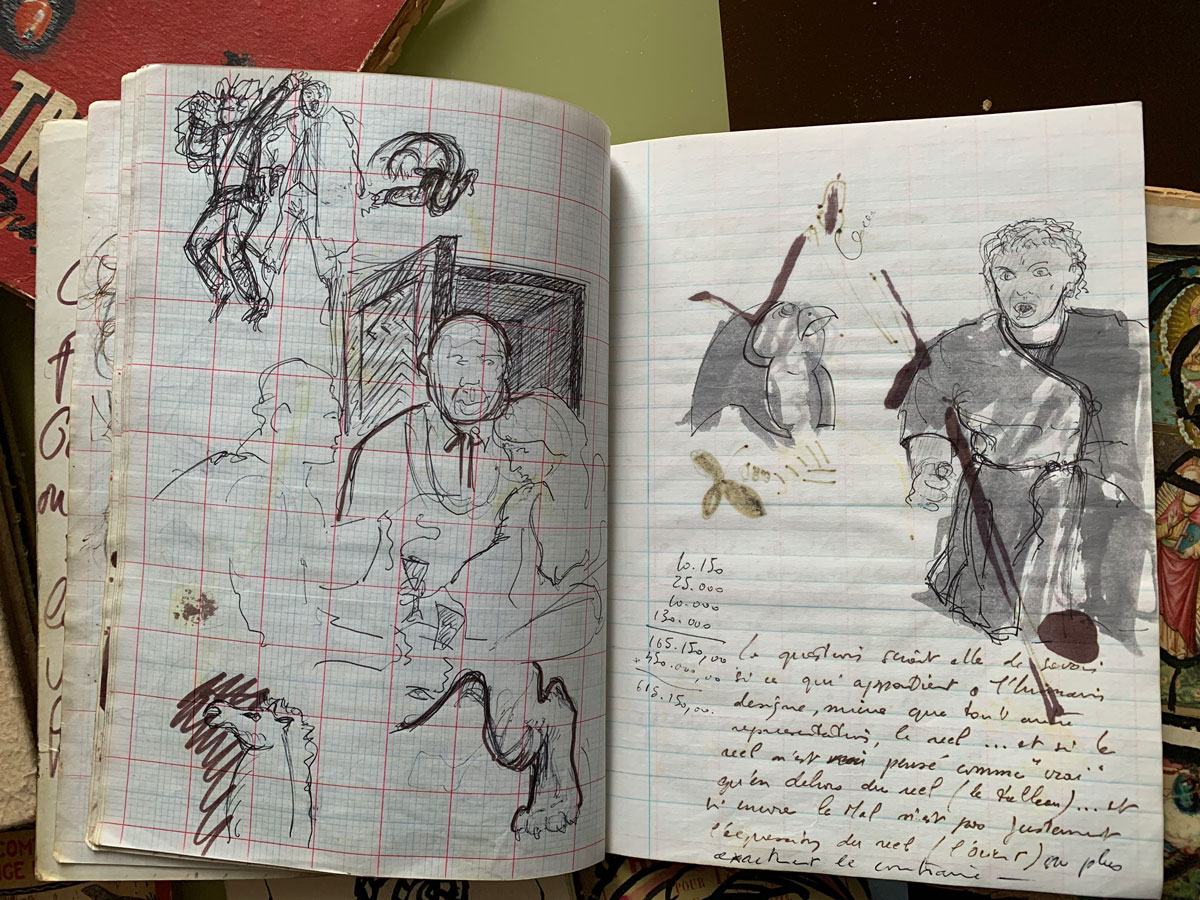 TR
10.150
25.000
10.000
130.000
165.150,00
+ 450.000,00
615.150,00.
La question serait elle de savoir
si ce qui appartient à l'humain
désigne, mieux que tout autre
représentation, le réel ... et si le
réel n'est pensé comme "vrai"
qu'en dehors du réel (le tableau)... et
si encore le Mal n'est pas justement
l'expression du réel ou plus
exactement le contraire —
POUR